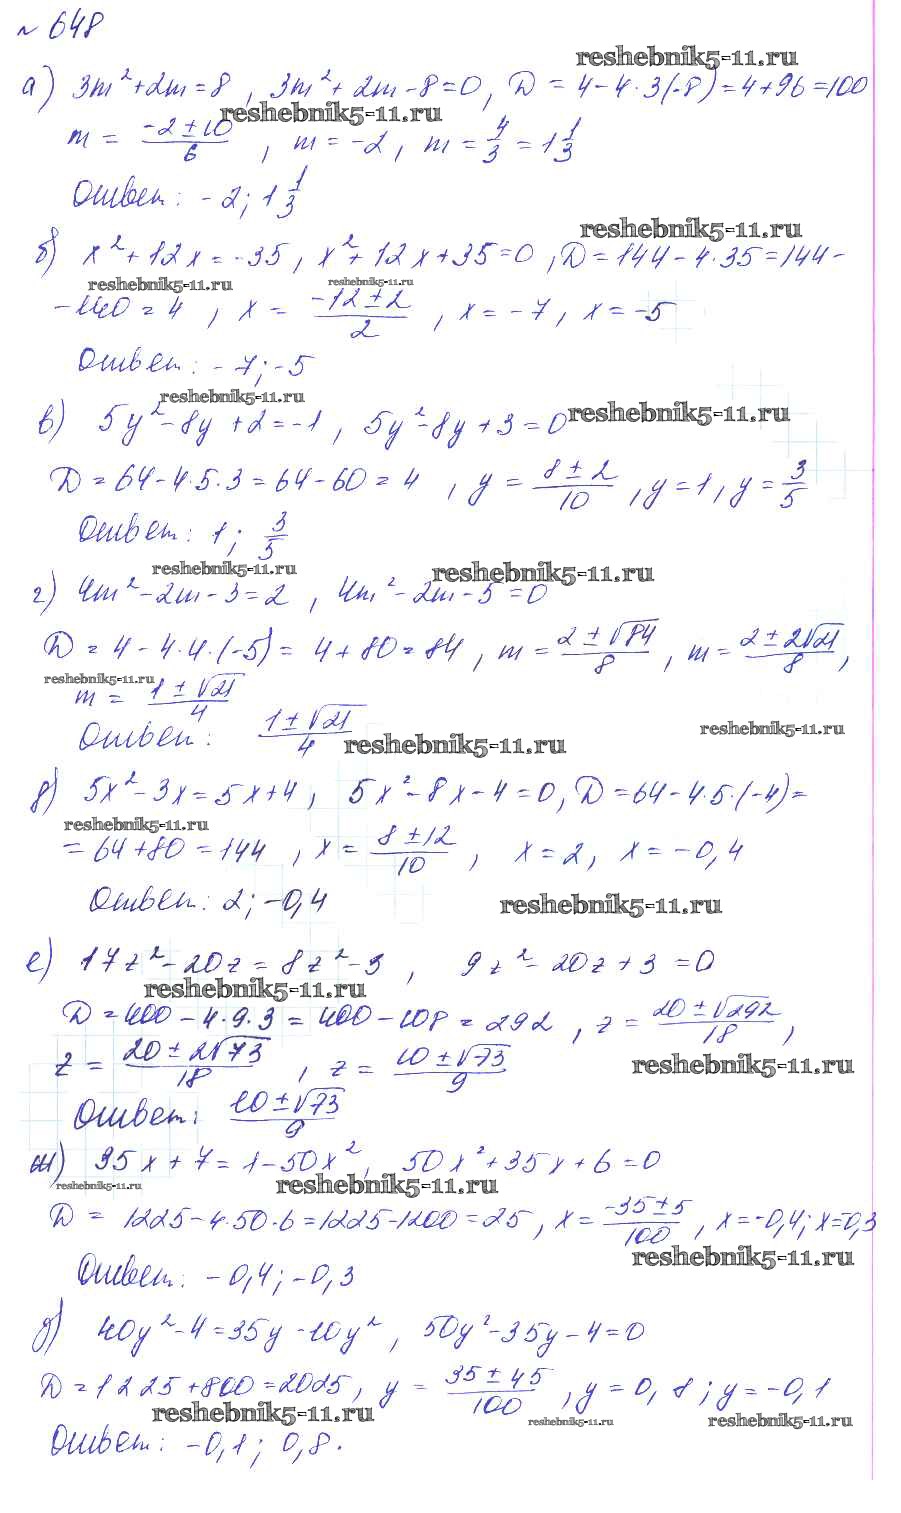 № 648
reshebnik5-11.ru
а) 3m²+2m=8, 3m²+2m-8=0, D=4-4·3(-8)=4+96=100
reshebnik5-11.ru
m = (-2±10)/6, m=-2, m=4/3=1 1/3
Ответ: -2; 1 1/3
reshebnik5-11.ru
б) x²+12x=-35, x²+12x+35=0, D=144-4·35=144-
reshebnik5-11.ru reshebnik5-11.ru
-140=4, x=(-12±2)/2, x=-7, x=-5
Ответ: -7; -5
reshebnik5-11.ru
в) 5y²-8y+2=-1, 5y²-8y+3=0
reshebnik5-11.ru
D=64-4·5·3=64-60=4, y=(8±2)/10, y=1, y=3/5
Ответ: 1; 3/5
reshebnik5-11.ru reshebnik5-11.ru
г) 4m²-2m-3=2, 4m²-2m-5=0
D=4-4·4·(-5)=4+80=84, m=(2±√84)/8, m=(2±2√21)/8,
reshebnik5-11.ru
m=(1±√21)/4
reshebnik5-11.ru
Ответ: (1±√21)/4
reshebnik5-11.ru
д) 5x²-3x=5x+4, 5x²-8x-4=0, D=64-4·5·(-4)=
reshebnik5-11.ru
=64+80=144, x=(8±12)/10, x=2, x=-0,4
Ответ: 2; -0,4
reshebnik5-11.ru
е) 17z²-20z=8z²-3, 9z²-20z+3=0
reshebnik5-11.ru
D=400-4·9·3=400-108=292, z=(20±√292)/18,
z=(20±2√73)/18, z=(10±√73)/9
reshebnik5-11.ru
Ответ: (10±√73)/9
ж) 35x+7=1-50x², 50x²+35x+6=0
reshebnik5-11.ru reshebnik5-11.ru
D=1225-4·50·6=1225-1200=25, x=(-35±5)/100, x=-0,4; x=-0,3
reshebnik5-11.ru
Ответ: -0,4; -0,3
д) 40y²-4=35y-10y², 50y²-35y-4=0
D=1225+800=2025, y=(35±45)/100, y=0,8; y=-0,1
reshebnik5-11.ru reshebnik5-11.ru reshebnik5-11.ru
Ответ: -0,1; 0,8.